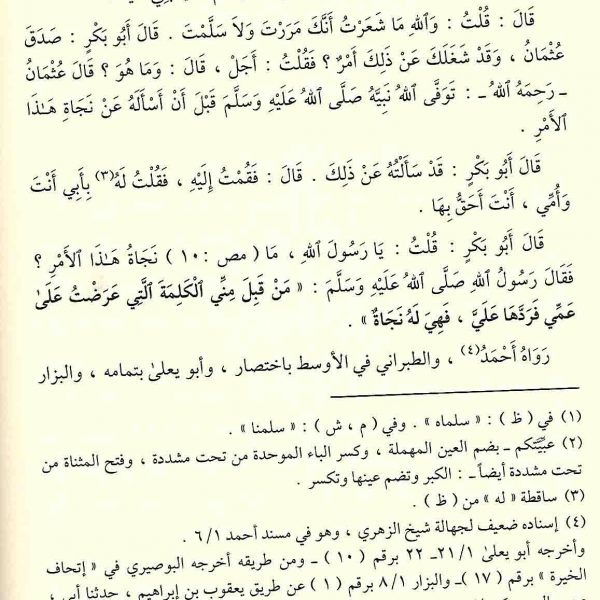 قَالَ : قُلْتُ : وَٱللهِ مَا شَعَرْتُ أَنَّكَ مَرَرْتَ وَلاَ سَلَّمْتَ . قَالَ أَبُو بَكْرٍ : صَدَقَ
عُثْمَانُ ، وَقَدْ شَغَلَكَ عَنْ ذَلِكَ أَمْرٌ ؟ فَقُلْتُ : أَجَلْ ، قَالَ : وَمَا هُوَ ؟ قَالَ عُثْمَانُ
ـ رَحِمَهُ ٱللهُ ـ : تَوَفَّى ٱللهُ نَبِيَّهُ صَلَّى ٱللهُ عَلَيْهِ وَسَلَّمَ قَبْلَ أَنْ أَسْأَلَهُ عَنْ نَجَاةِ هَـٰذَا
ٱلأَمْرِ .
قَالَ أَبُو بَكْرٍ : قَدْ سَأَلْتُهُ عَنْ ذَلِكَ . قَالَ : فَقُمْتُ إِلَيْهِ ، فَقُلْتُ لَهُ(٣) بِأَبِي أَنْتَ
وَأُمِّي ، أَنْتَ أَحَقُّ بِهَا .
قَالَ أَبُو بَكْرٍ : قُلْتُ : يَا رَسُولَ ٱللهِ ، مَا ( مص : ١٠ ) نَجَاةُ هَـٰذَا ٱلأَمْرِ ؟
فَقَالَ رَسُولُ ٱللهِ صَلَّى ٱللهُ عَلَيْهِ وَسَلَّمَ : « مَنْ قَبِلَ مِنِّي ٱلْكَلِمَةَ ٱلَّتِي عَرَضْتُ عَلَىٰ
عَمِّي فَرَدَّهَا عَلَيَّ ، فَهِيَ لَهُ نَجَاةٌ » .
رَوَاهُ أَحْمَدُ(٤) ، والطبراني في الأوسط باختصار ، وأبو يعلىٰ بتمامه ، والبزار
(١) في ( ظ ) : « سلماه » . وفي ( م ، ش ) : « سلمنا » .
(٢) عبيّتكم ـ بضم العين المهملة ، وكسر الباء الموحدة من تحت مشددة ، وفتح المثناة من
تحت مشددة أيضاً ـ : الكبر وتضم عينها وتكسر .
(٣) ساقطة « له » من ( ظ ) .
(٤) إسناده ضعيف لجهالة شيخ الزهري ، وهو في مسند أحمد ٦/١ .
وأخرجه أبو يعلىٰ ٢١/١ ـ ٢٢ برقم ( ١٠ ) ـ ومن طريقه أخرجه البوصيري في « إتحاف
الخيرة » برقم ( ١٧ ) ـ والبزار ٨/١ برقم ( ١ ) عن طريق يعقوب بن إبراهيم ، حدثنا أبي ،